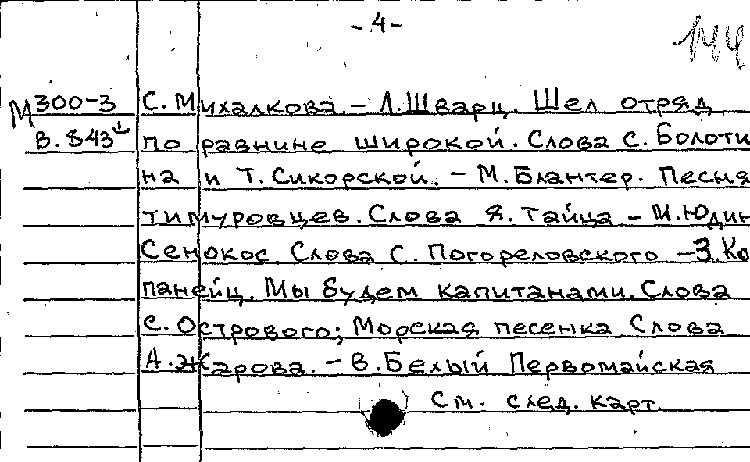 -4-
144
М 300-3
В.843
С. Михалкова. – Л. Шварц. Шел отряд
по равнине широкой. Слова С. Болоти
на и Т. Сикорской. – М. Блантер. Песня
тимуровцев. Слова Я. Тайца – М. Юдин
Сенокос. Слова С. Погореловского – З. Ко
панейц. Мы будем капитанами. Слова
С. Острового; Морская песенка Слова
А. Жарова. – В. Белый Первомайская
См. след. карт.